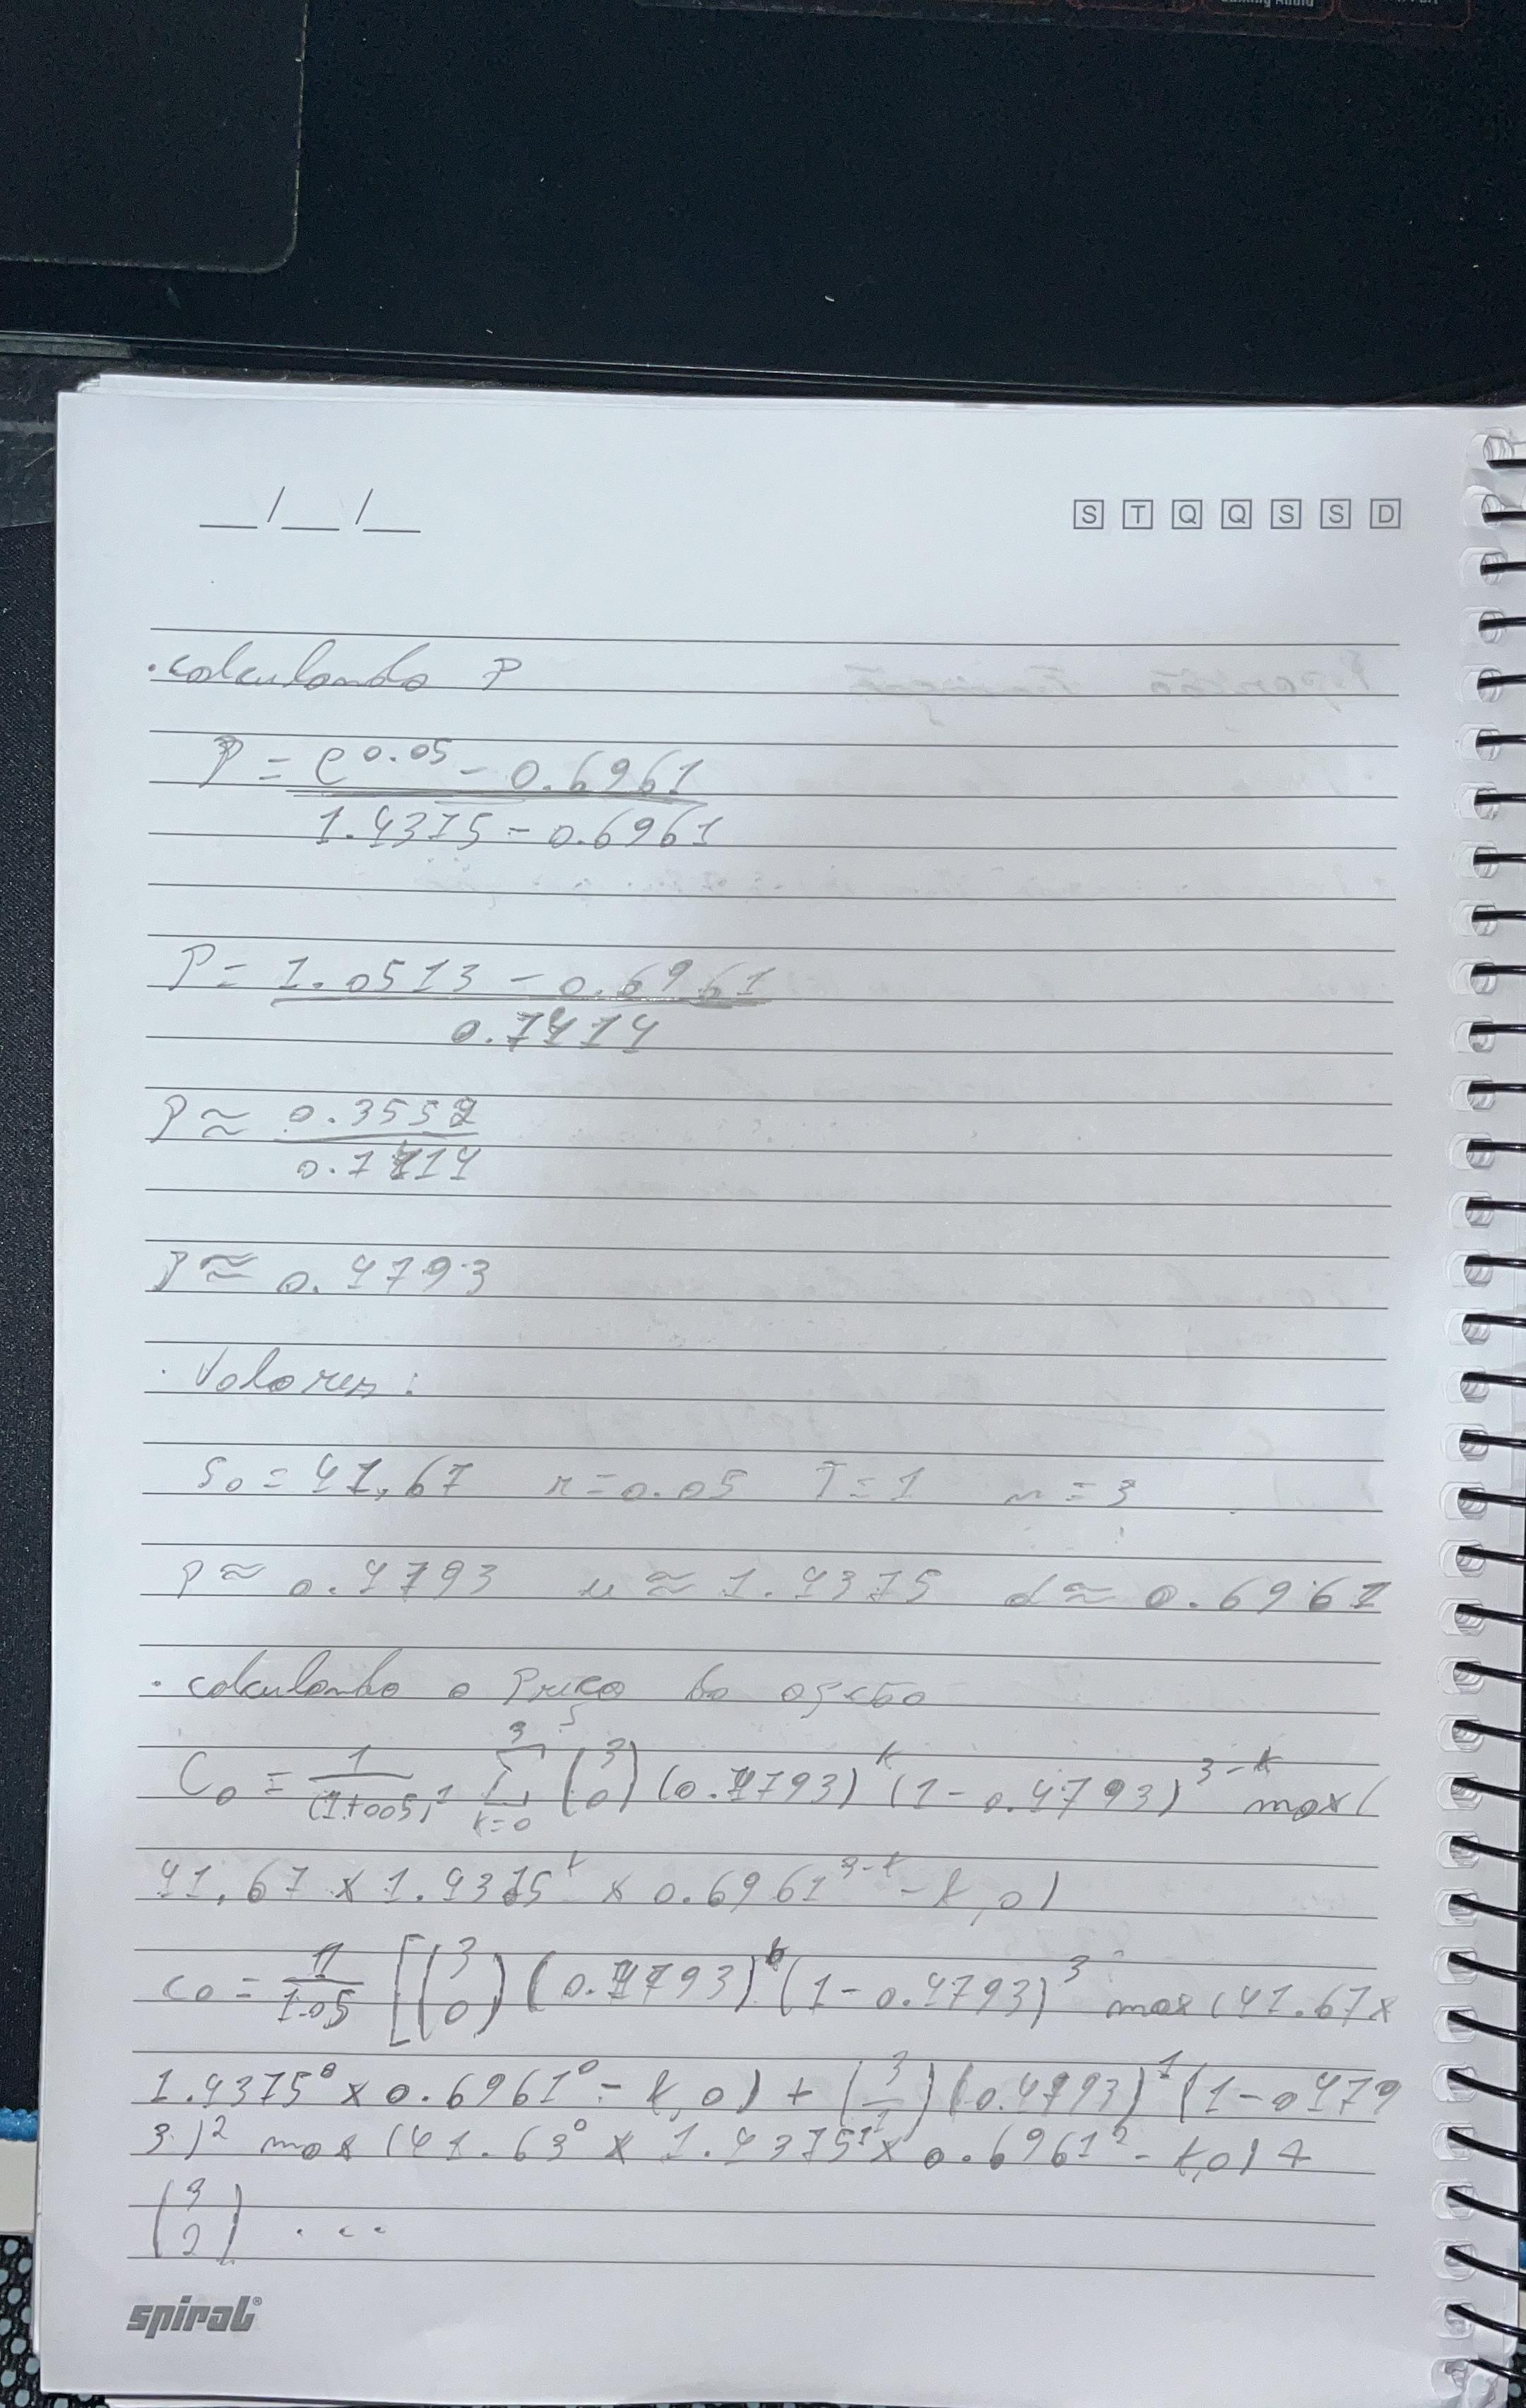 __/__/__ S T Q Q S S D
. calculando P
P = e^0.05 - 0.6961
1.4375 - 0.6961
P = 1.0513 - 0.6961
0.7414
P ≈ 0.3552
0.7414
P ≈ 0.4793
. Valores:
S0 = 41,67 r = 0.05 T = 1 n = 3
P ≈ 0.4793 u ≈ 1.4375 d ≈ 0.6961
. calculando o Preço da opção
C0 = 1/(1+005)^1 3 Σ k=0 (3 0) (0.4793)^k (1-0.4793)^3-k max(
41,67 x 1.4375^k x 0.6961^3-k - k,0)
C0 = 1/1.05 [(3 0) (0.4793)^0 (1-0.4793)^3 max(41.67x
1.4375^0 x 0.6961^0 - k,0) + (3 1) (0.4793)^1 (1-0479
3)^2 max(41.63^0 x 1.4375^1 x 0.6961^2 - k,0) +
(3 2) ...
spiral®